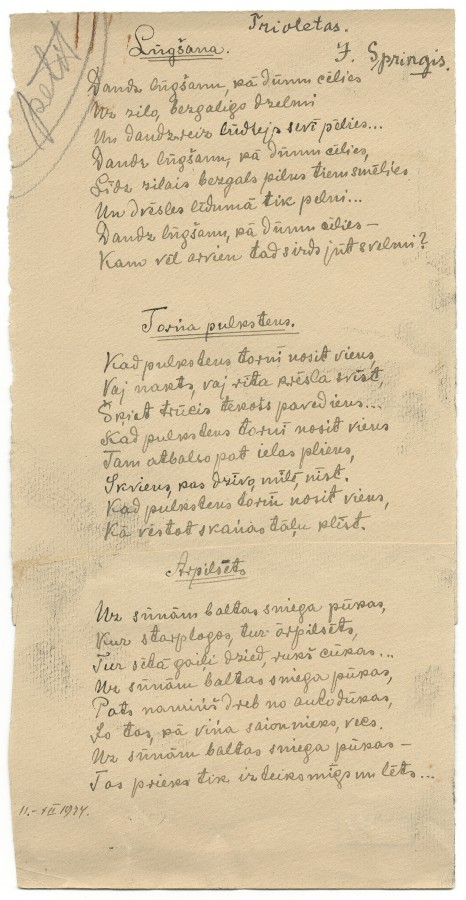 petit
Trioletas.
J. Springis.
Lūgšana.
Daudz lūgšanu, kā dūmu cēlies
Uz zilo, bezgalīgo dzelmi
Un daudzreiz lūdzējs sevī pēlies...
Daudz lūgšanu, kā dūmu cēlies,
Līdz zilais bezgals pilns tiem smēlies
Un dvēsles līdumā tik pelni...
Daudz lūgšanu, kā dūmu cēlies –
Kam vēl arvien tad sirds jūt svelmi?
Torņa pulkstens.
Kad pulkstens tornī nosit viens,
Vaj nakts, vaj rīta krēsla svīst,
Šķiet trūcis tekošs pavediens...
Kad pulkstens tornī nosit viens
Tam atbalso pat ielas pliens,
Ikviens, kas dzīvo, mīl, nīst.
Kad pulkstens tornī nosit viens,
Kā vēstot skaņas tāļu klīst.
Ārpilsēts
Uz sūnām baltas sniega pūkas,
Kur starplogos, tur ārpilsēts,
Tur sētā gaiļi dzied, rukš cūkas...
Uz sūnām baltas sniega pūkas,
Pats namiņš dreb no auto dūkas,
Lo tas, kā viņa saimnieks, vecs.
Uz sūnām baltas sniega pūkas –
Tas prieks tik izteiksmīgs un lēts...
11.-XII 1924.